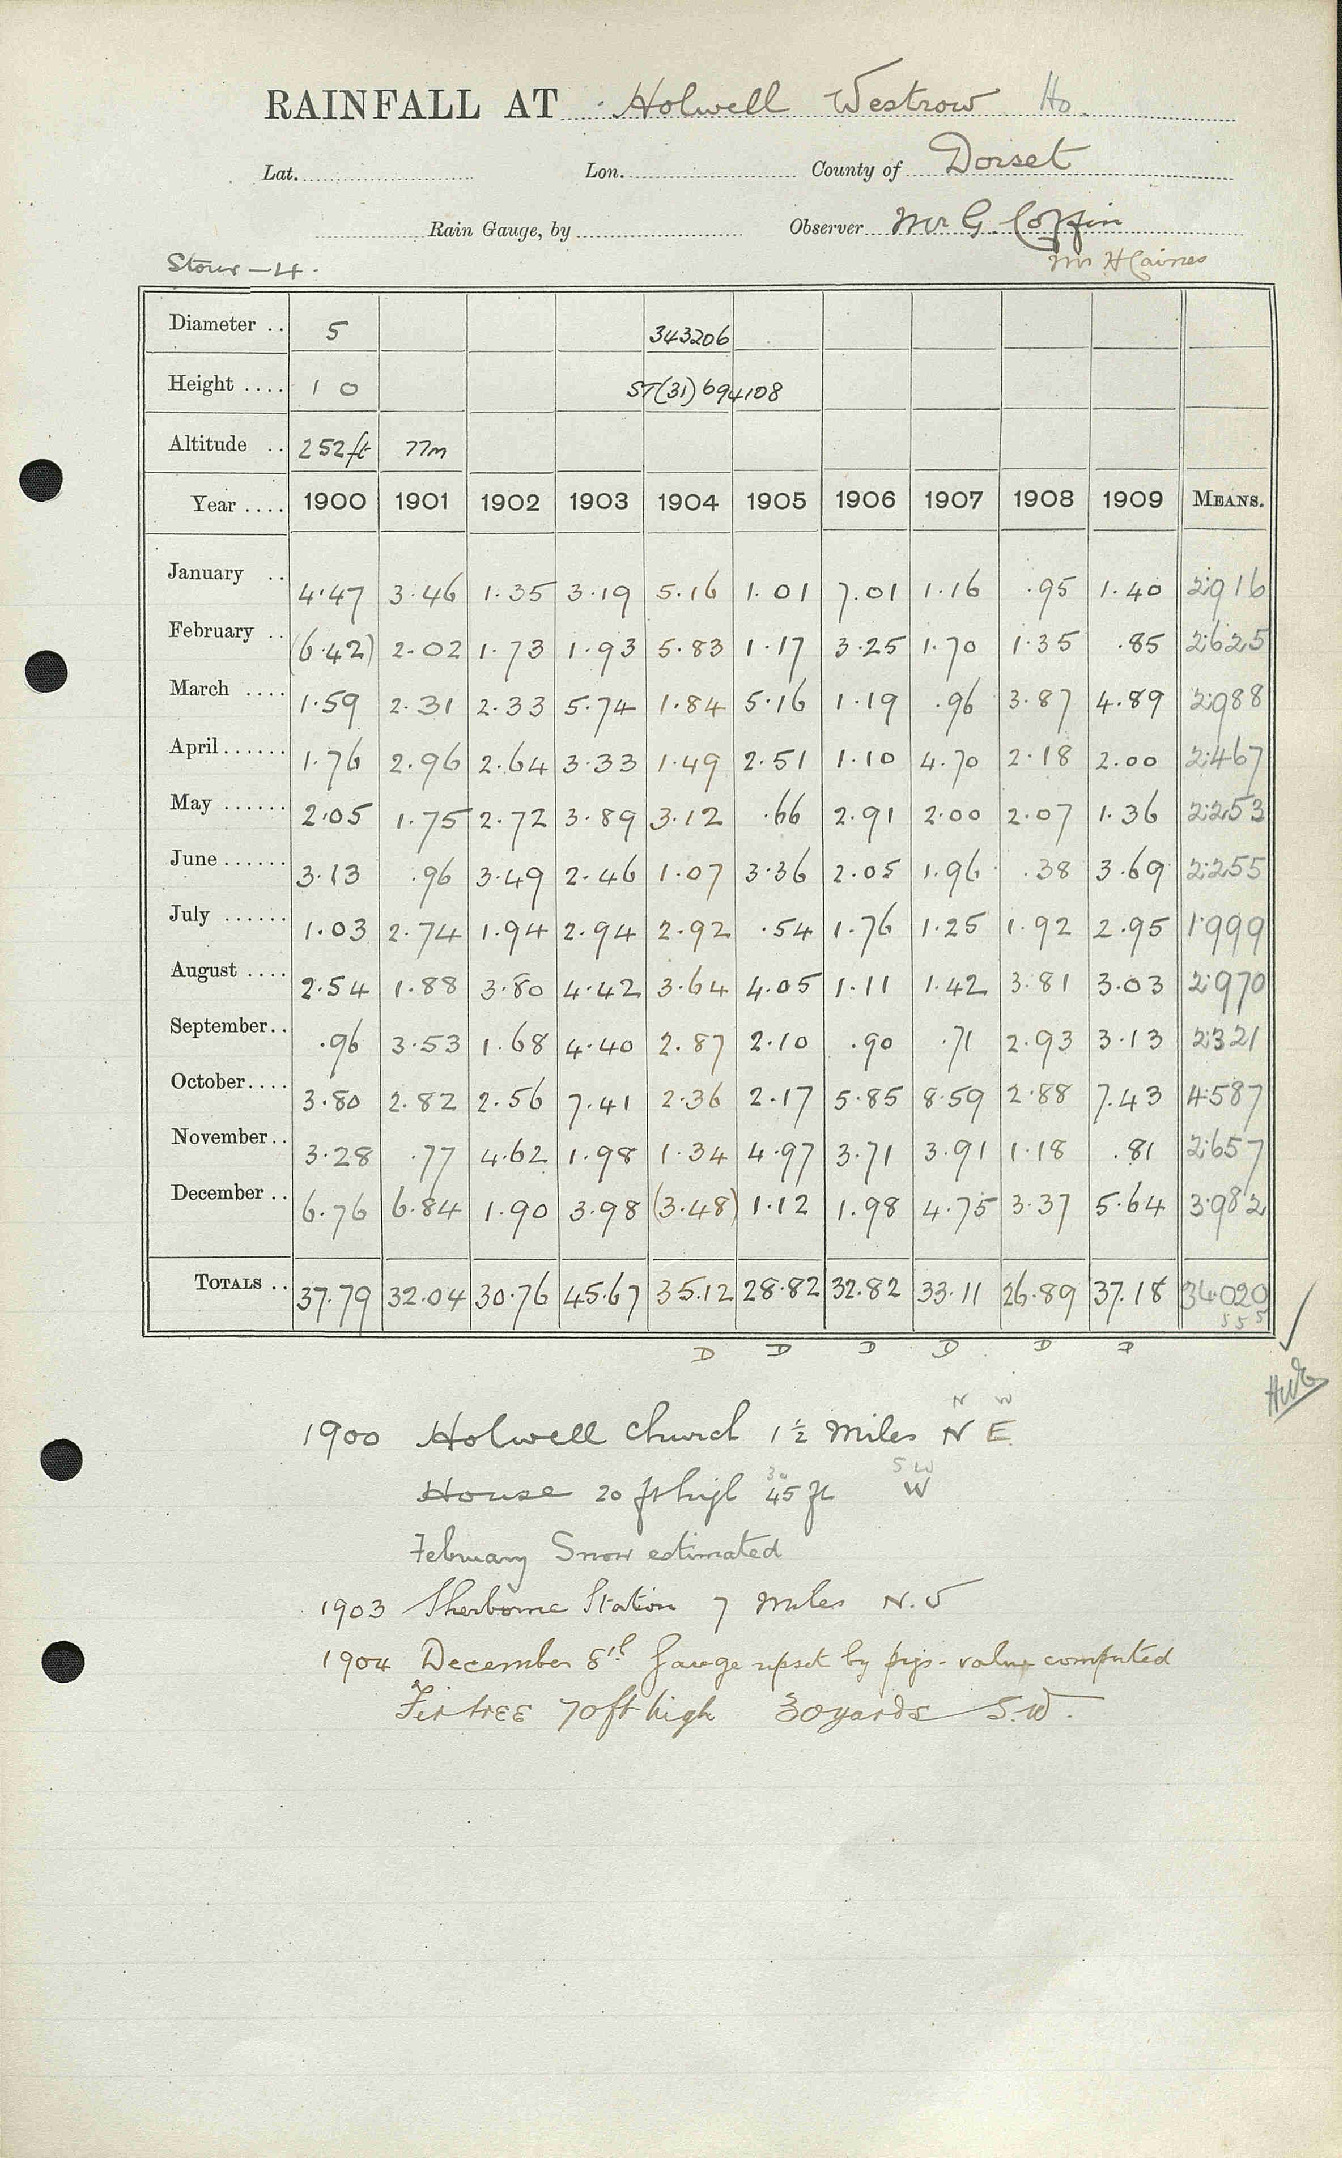 RAINFALL AT Holwell Westrow Ho.
Lat. Lon. County of Dorset
Rain Gauge, by Observer Mr G. Coffin
Stour — 4. Mr H Caines
Diameter .. 5 343206
Height .... 1 0 ST(31)694108
Altitude .. 252ft 77m
Year .... 1900 1901 1902 1903 1904 1905 1906 1907 1908 1909 MEANS.
January .. 4.47 3.46 1.35 3.19 5.16 1.01 7.01 1.16 .95 1.40 2.916
February .. (6.42) 2.02 1.73 1.93 5.83 1.17 3.25 1.70 1.35 .85 2.625
March .... 1.59 2.31 2.33 5.74 1.84 5.16 1.19 .96 3.87 4.89 2.988
April ...... 1.76 2.96 2.64 3.33 1.49 2.51 1.10 4.70 2.18 2.00 2.467
May ...... 2.05 1.75 2.72 3.89 3.12 .66 2.91 2.00 2.07 1.36 2.253
June ...... 3.13 .96 3.49 2.46 1.07 3.36 2.05 1.96 .38 3.69 2.255
July ...... 1.03 2.74 1.94 2.94 2.92 .54 1.76 1.25 1.92 2.95 1.999
August .... 2.54 1.88 3.80 4.42 3.64 4.05 1.11 1.42 3.81 3.03 2.970
September .. .96 3.53 1.68 4.40 2.87 2.10 .90 .71 2.93 3.13 2.321
October .... 3.80 2.82 2.56 7.41 2.36 2.17 5.85 8.59 2.88 7.43 4.587
November .. 3.28 .77 4.62 1.98 1.34 4.97 3.71 3.91 1.18 .81 2.657
December .. 6.76 6.84 1.90 3.98 (3.48) 1.12 1.98 4.75 3.37 5.64 3.982
TOTALS .. 37.79 32.04 30.76 45.67 35.12 28.82 32.82 33.11 26.89 37.18 34.020
5 5 5
D D D D D D
N W
1900 Holwell Church 1½ Miles N E
30 S W
House 20 ft high 45 ft W
February Snow estimated
1903 Sherborne Station 7 Miles N.W
1904 December 8th Gauge upset by pigs - value computed
Fir tree 70ft high 30yards S.W.